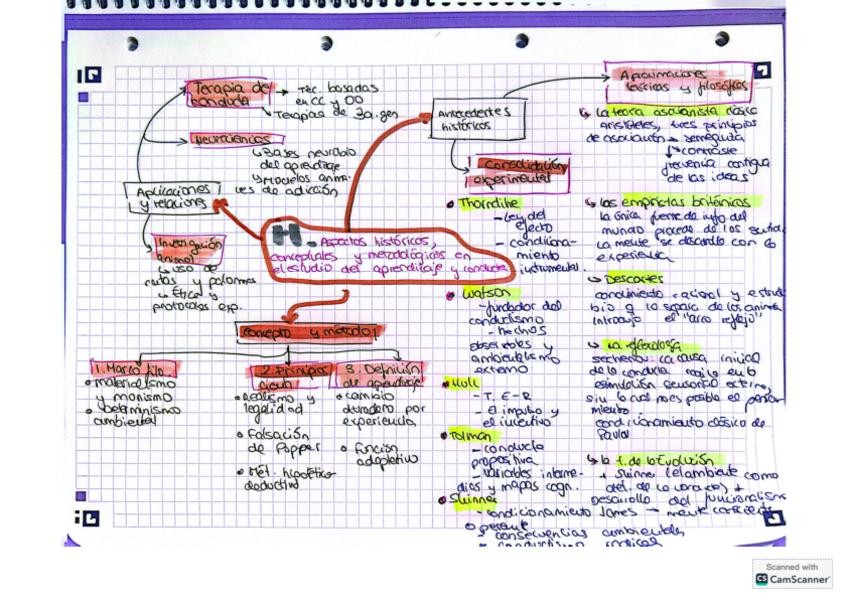 Terapia de
conducta
→ Téc. basadas
en CC y CO
↳ Terapias de 3a. gen
Neurociencias
↳ Bases neurobio
del aprendizaje
↳ Modelos anima-
les de adicción
Aplicaciones
y relaciones
Investigación
animal
↳ uso de
ratas y palomas
↳ Ética y
protocolos exp.
H. Aspectos históricos,
conceptuales y metodológicos en
el estudio del aprendizaje y conducta
Concepto y método
1. Marco filo.
• materialismo
y monismo
• Determinismo
ambiental
2. Principios
• Realismo y
legalidad
• Falsación
de Popper
• Mét. hipotético
deductivo
3. Definición
de aprendizaje
• cambio
duradero por
experiencia
• Función
adaptativa
Antecedentes
históricos
Consolidación
experimental
• Thorndike
- Ley del
efecto
- condiciona-
miento
instrumental.
• Watson
- fundador del
conductismo
- hechos
observables y
ambientalismo
extremo
• Hull
- T. E-R
- El impulso y
el incentivo
• Tolman
- conducta
propositiva
- variables interme-
dias y mapas cogn.
• Skinner
- condicionamiento
operante
- consecuencias ambientales
- conductismo radical
Aproximaciones
teóricas y filosóficas
↳ La teoría asociacionista clásica
Aristóteles, tres principios
de asociación → semejanza
↳ contraste
frecuencia contigua
de las ideas
↳ Los empiristas británicos
la única fuente de info del
mundo procede de los sentid
La mente se desarrolló con la
experiencia
↳ Descartes
conocimiento racional y estud
bio a lo
Introdujo el "arco reflejo"
↳ La reflexología
Sechenov: La causa inicial
de la conducta radica en la
estimulación sensorial externa,
sin la cual no es posible el pensa
miento
condicionamiento clásico de
Pavlov
↳ la T. de la Evolución
+ Skinner (el ambiente como
det. de la conducta) +
Desarrollo del funcionalismo
James → mente consciente
Scanned with
CS CamScanner